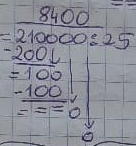 8400
=210000:25
-200
=100
-100
===0
0